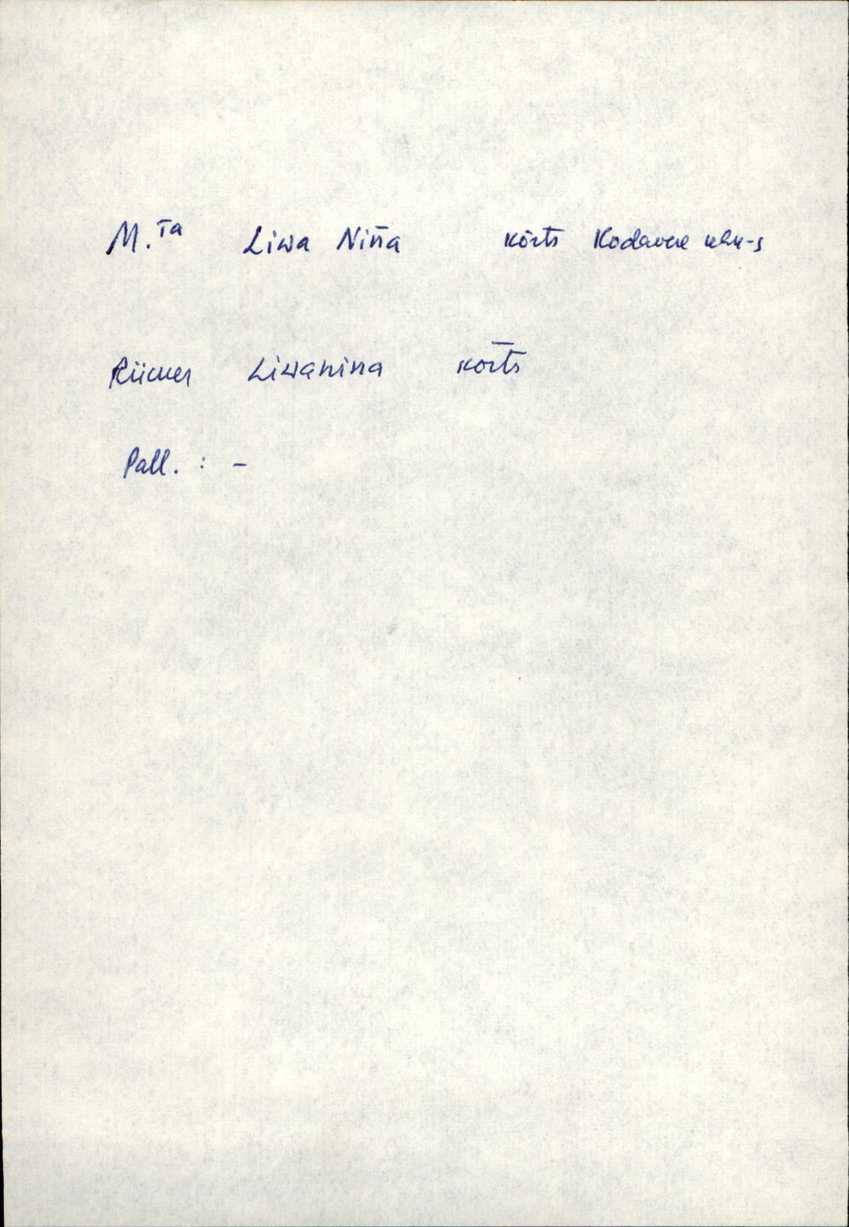 M.Ta Liwa Niña kõrts Kodavere khk-s
Rücker Liwanina kõrts
Pall. : -